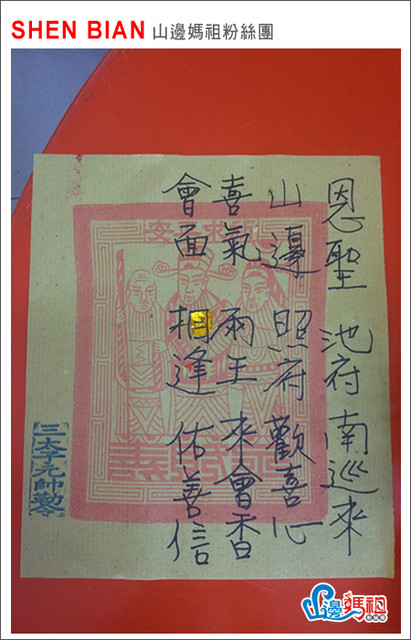 SHEN BIAN 山邊媽祖粉絲團
恩聖 池府南巡來
山邊 照府歡喜心
喜氣 兩王來會香
會面 相逢佑善信
三太子元帥勅令
山邊媽祖
粉絲團